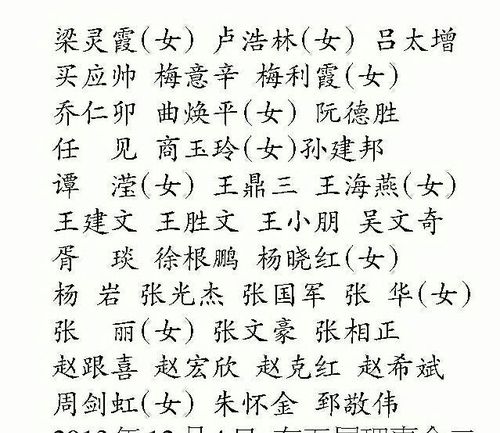 梁灵霞(女) 卢浩林(女) 吕太增
买应帅 梅意辛 梅利霞(女)
乔仁卯 曲焕平(女) 阮德胜
任 见 商玉玲(女)孙建邦
谭 滢(女) 王鼎三 王海燕(女)
王建文 王胜文 王小朋 吴文奇
胥 琰 徐根鹏 杨晓红(女)
杨 岩 张光杰 张国军 张 华(女)
张 丽(女) 张文豪 张相正
赵跟喜 赵宏欣 赵克红 赵希斌
周剑虹(女) 朱怀金 郅敬伟